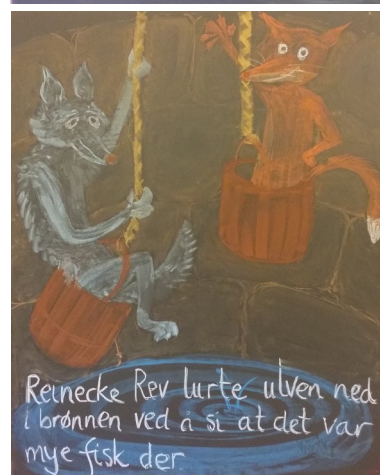 Reinecke Rev lurte ulven ned
i brønnen ved a si at det var
mye fisk der